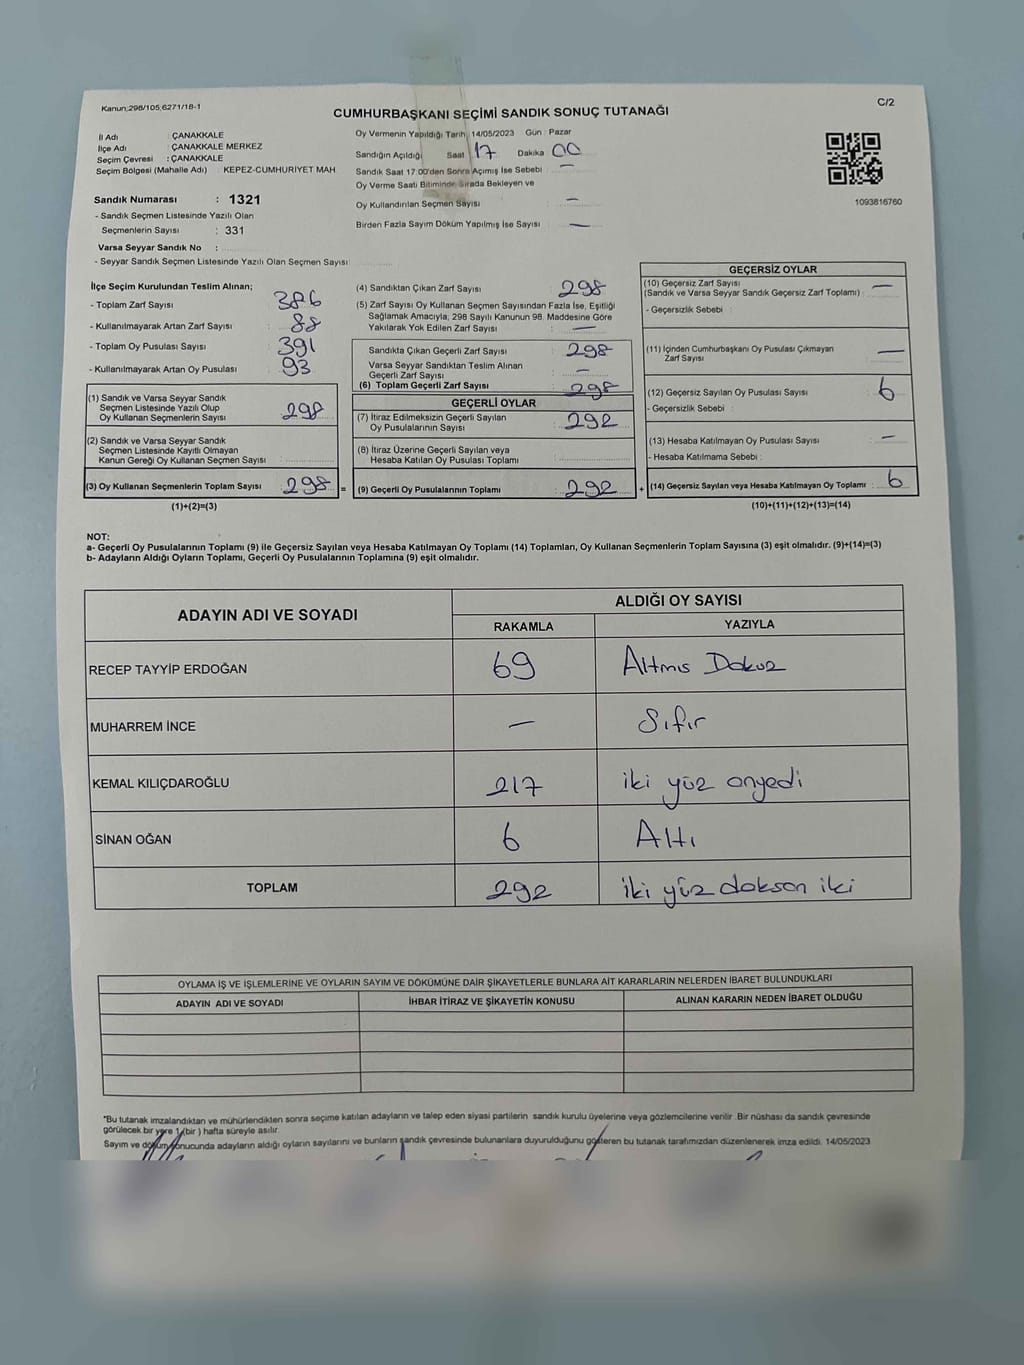 Kanun;298/105,6271/18-1
C/2
CUMHURBAŞKANI SEÇİMİ SANDIK SONUÇ TUTANAĞI
İl Adı : ÇANAKKALE
İlçe Adı : ÇANAKKALE MERKEZ
Seçim Çevresi : ÇANAKKALE
Seçim Bölgesi (Mahalle Adı) : KEPEZ-CUMHURİYET MAH
Sandık Numarası : 1321
- Sandık Seçmen Listesinde Yazılı Olan
Seçmenlerin Sayısı : 331
Varsa Seyyar Sandık No :
- Seyyar Sandık Seçmen Listesinde Yazılı Olan Seçmen Sayısı:
Oy Vermenin Yapıldığı Tarih; 14/05/2023 Gün : Pazar
Sandığın Açıldığı Saat 17 Dakika 00
Sandık Saat 17:00'den Sonra Açımış İse Sebebi : —
Oy Verme Saati Bitiminde Sırada Bekleyen ve
Oy Kullandırılan Seçmen Sayısı —
Birden Fazla Sayım Döküm Yapılmış İse Sayısı : —
1093816760
İlçe Seçim Kurulundan Teslim Alınan;
- Toplam Zarf Sayısı : 386
- Kullanılmayarak Artan Zarf Sayısı : 88
- Toplam Oy Pusulası Sayısı : 391
- Kullanılmayarak Artan Oy Pusulası : 93
(1) Sandık ve Varsa Seyyar Sandık
Seçmen Listesinde Yazılı Olup
Oy Kullanan Seçmenlerin Sayısı : 298
(2) Sandık ve Varsa Seyyar Sandık
Seçmen Listesinde Kayıtlı Olmayan
Kanun Gereği Oy Kullanan Seçmen Sayısı :
(3) Oy Kullanan Seçmenlerin Toplam Sayısı : 298 =
(1)+(2)=(3)
(4) Sandıktan Çıkan Zarf Sayısı : 298
(5) Zarf Sayısı Oy Kullanan Seçmen Sayısından Fazla İse, Eşitliği
Sağlamak Amacıyla; 298 Sayılı Kanunun 98. Maddesine Göre
Yakılarak Yok Edilen Zarf Sayısı : —
Sandıkta Çıkan Geçerli Zarf Sayısı : 298
Varsa Seyyar Sandıktan Teslim Alınan
Geçerli Zarf Sayısı : —
(6) Toplam Geçerli Zarf Sayısı : 298
GEÇERLİ OYLAR
(7) İtiraz Edilmeksizin Geçerli Sayılan
Oy Pusulalarının Sayısı : 292
(8) İtiraz Üzerine Geçerli Sayılan veya
Hesaba Katılan Oy Pusulası Toplamı :
(9) Geçerli Oy Pusulalarının Toplamı : 292 +
GEÇERSİZ OYLAR
(10) Geçersiz Zarf Sayısı
(Sandık ve Varsa Seyyar Sandık Geçersiz Zarf Toplamı) : —
- Geçersizlik Sebebi :
(11) İçinden Cumhurbaşkanı Oy Pusulası Çıkmayan
Zarf Sayısı : —
(12) Geçersiz Sayılan Oy Pusulası Sayısı : 6
- Geçersizlik Sebebi :
(13) Hesaba Katılmayan Oy Pusulası Sayısı : —
- Hesaba Katılmama Sebebi :
(14) Geçersiz Sayılan veya Hesaba Katılmayan Oy Toplamı : 6
(10)+(11)+(12)+(13)=(14)
NOT:
a- Geçerli Oy Pusulalarının Toplamı (9) ile Geçersiz Sayılan veya Hesaba Katılmayan Oy Toplamı (14) Toplamları, Oy Kullanan Seçmenlerin Toplam Sayısına (3) eşit olmalıdır. (9)+(14)=(3)
b- Adayların Aldığı Oyların Toplamı, Geçerli Oy Pusulalarının Toplamına (9) eşit olmalıdır.
ADAYIN ADI VE SOYADI
ALDIĞI OY SAYISI
RAKAMLA YAZIYLA
RECEP TAYYİP ERDOĞAN 69 Altmıs Dokuz
MUHARREM İNCE — Sıfır
KEMAL KILIÇDAROĞLU 217 iki yüz onyedi
SİNAN OĞAN 6 Altı
TOPLAM 292 iki yüz doksan iki
OYLAMA İŞ VE İŞLEMLERİNE VE OYLARIN SAYIM VE DÖKÜMÜNE DAİR ŞİKAYETLERLE BUNLARA AİT KARARLARIN NELERDEN İBARET BULUNDUKLARI
ADAYIN ADI VE SOYADI İHBAR İTİRAZ VE ŞİKAYETİN KONUSU ALINAN KARARIN NEDEN İBARET OLDUĞU
*Bu tutanak imzalandıktan ve mühürlendikten sonra seçime katılan adayların ve talep eden siyasi partilerin sandık kurulu üyelerine veya gözlemcilerine verilir. Bir nüshası da sandık çevresinde
görülecek bir yere 1 (bir ) hafta süreyle asılır.
Sayım ve döküm sonucunda adayların aldığı oyların sayılarını ve bunların sandık çevresinde bulunanlara duyurulduğunu gösteren bu tutanak tarafımızdan düzenlenerek imza edildi. 14/05/2023